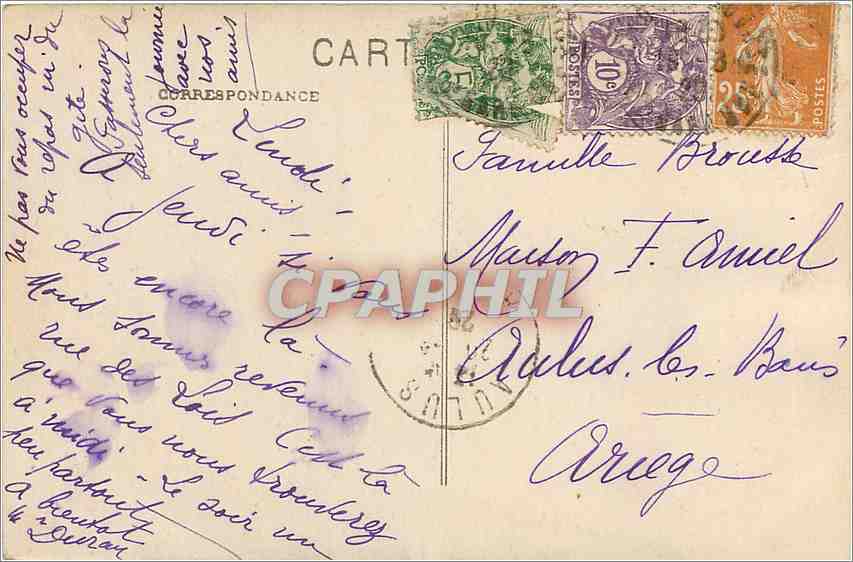 CARTE
CORRESPONDANCE
5
POSTES
10c
POSTES
25c
POSTES
Famille Brousse
Maison F. Amiel
Aulus-les-Bains
Ariège
AULUS
28
CPAPHIL
Lundi -
Chers amis -
Jeudi - si vous
êtes encore là
Nous sommes revenus
rue des Lois C'est là
que vous nous trouverez
à midi - Le soir un
peu partout
à bientôt
Duran
Ne pas vous occuper
du repos ni du
gîte
seulement la
journée
avec
nos
amis